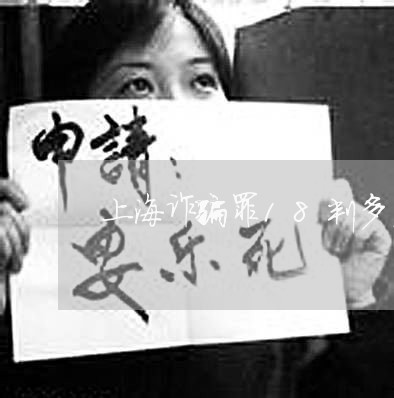 申請：
上海诈骗罪18判多
安乐死